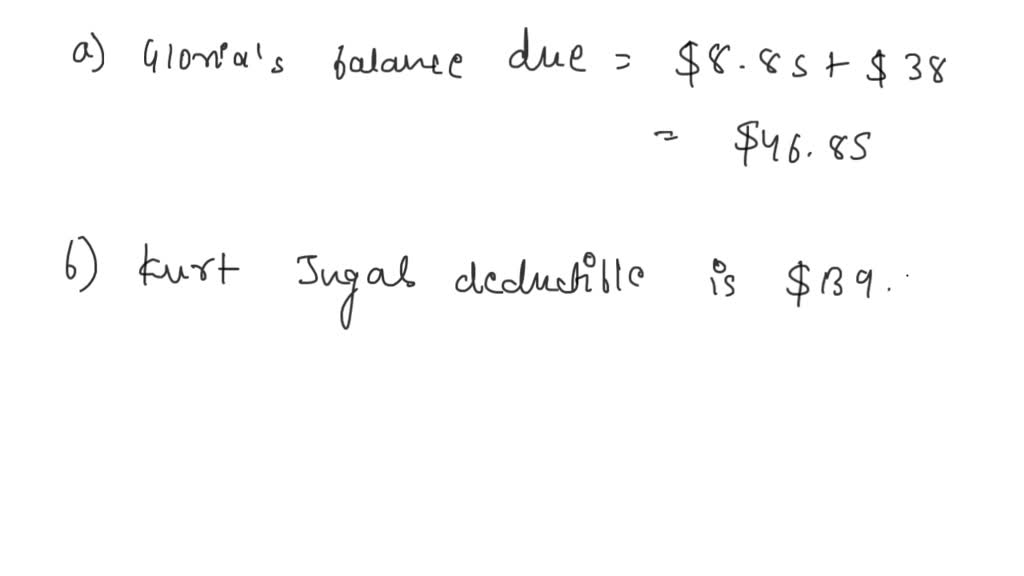 a) Gloria's balance due = $8.85 + $38
= $46.85
b) Kurt Jugal deductible is $139.